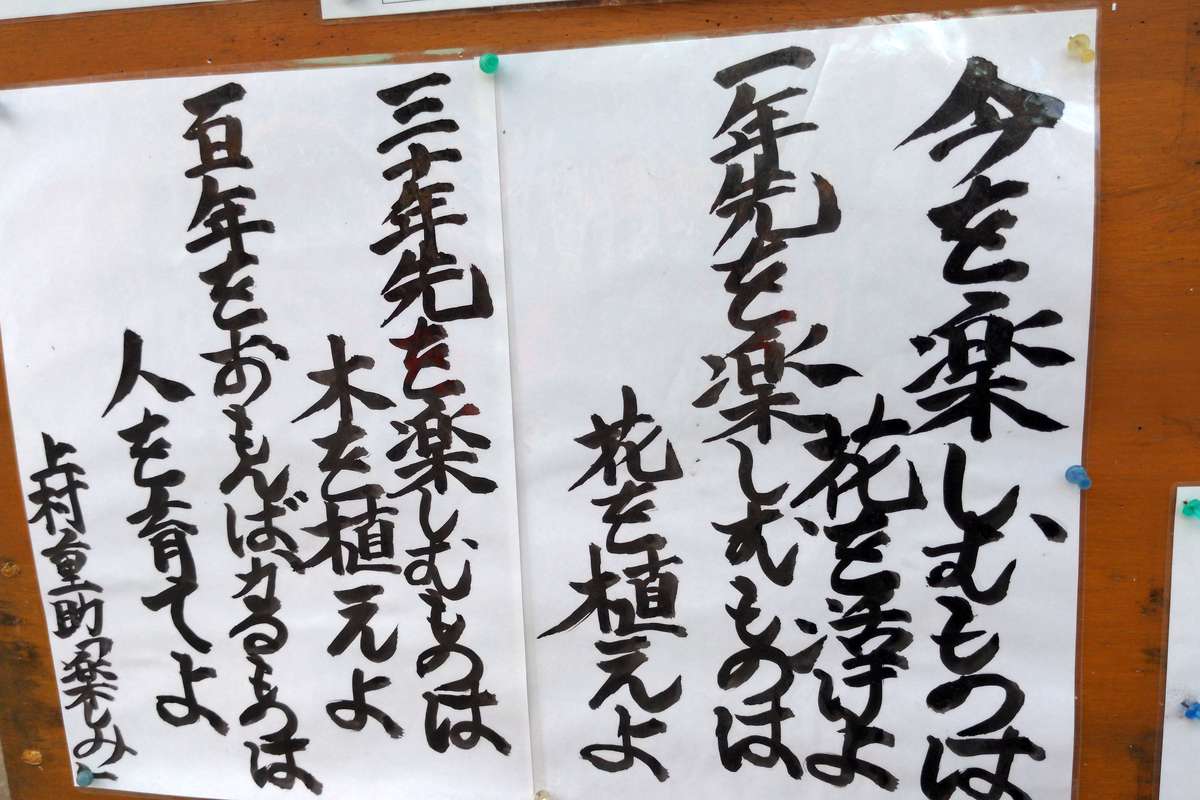 今を楽しむものは
花を活けよ
一年先を楽しむものは
花を植えよ
三十年先を楽しむものは
木を植えよ
百年をおもんばかるものは
人を育てよ
上村重助の楽しみ